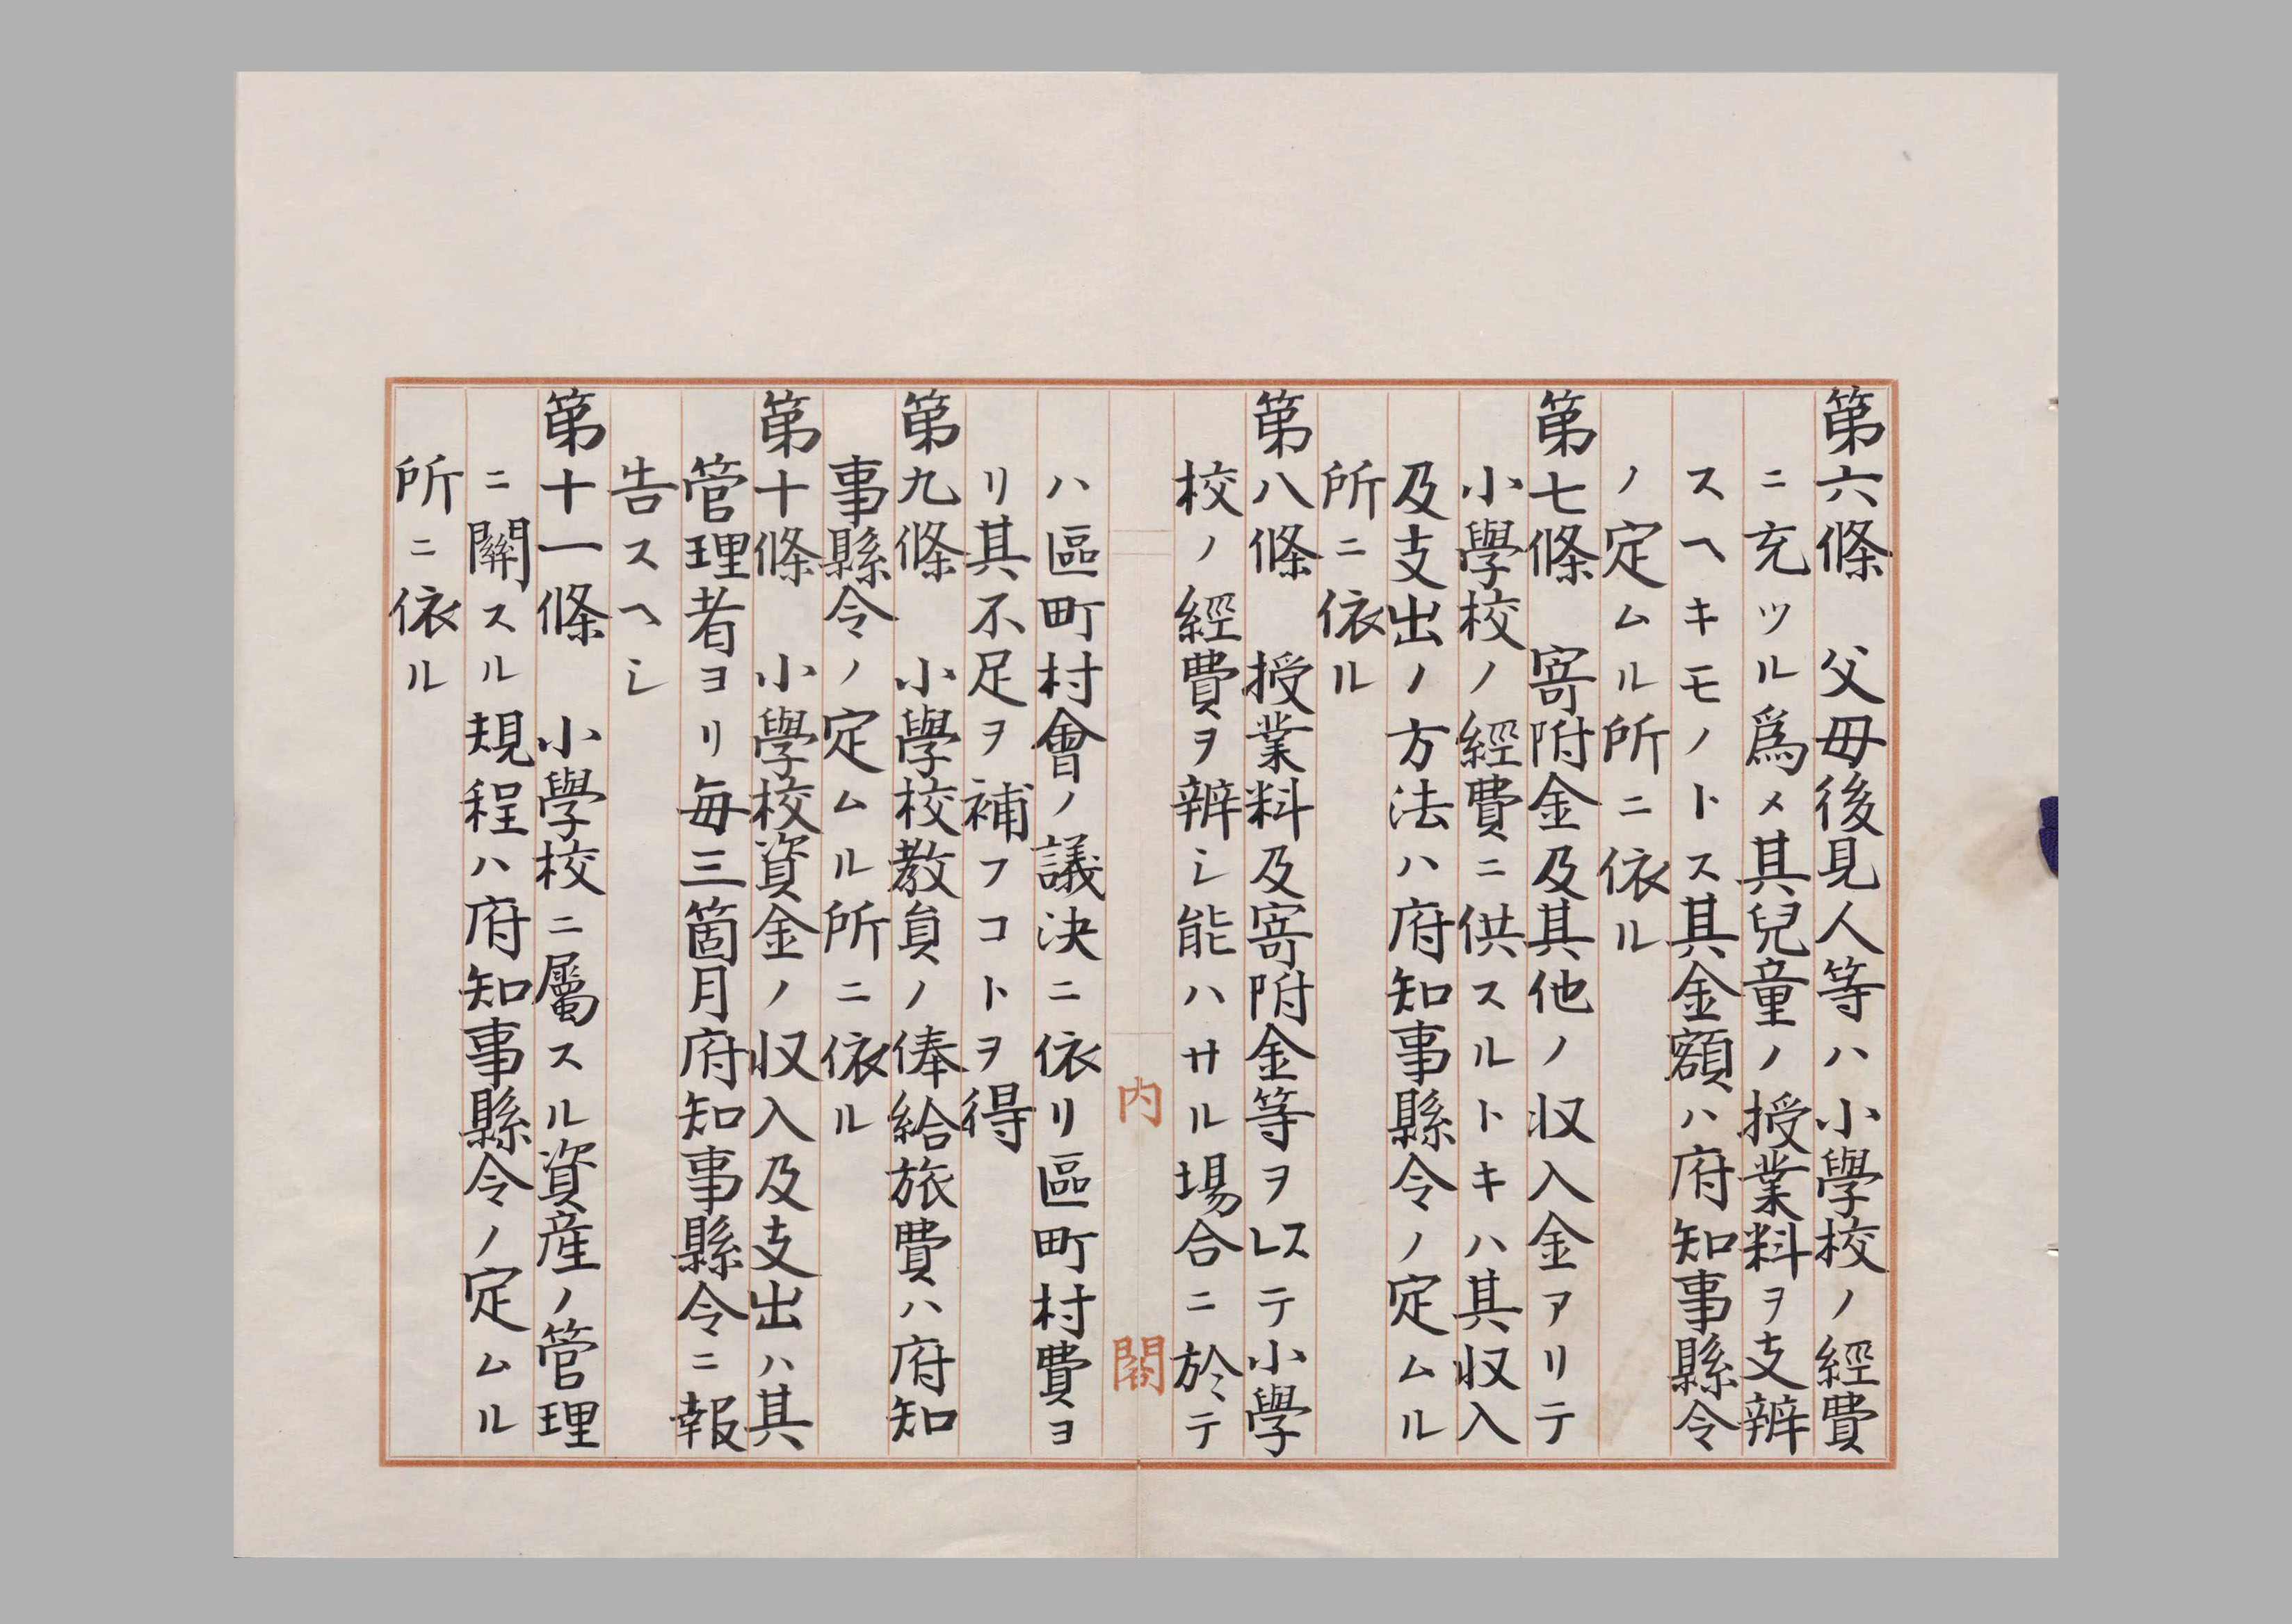 第六條　父母後見人等ハ小學校ノ經費
ニ充ツル爲メ其兒童ノ授業料ヲ支辨
スヘキモノトス其金額ハ府知事縣令
ノ定ムル所ニ依ル
第七條　寄附金及其他ノ収入金アリテ
小學校ノ經費ニ供スルトキハ其収入
及支出ノ方法ハ府知事縣令ノ定ムル
所ニ依ル
第八條　授業料及寄附金等ヲ以テ小學
校ノ經費ヲ辨シ能ハサル場合ニ於テ
内閣
ハ區町村會ノ議決ニ依リ區町村費ヨ
リ其不足ヲ補フコトヲ得
第九條　小學校教員ノ俸給旅費ハ府知
事縣令ノ定ムル所ニ依ル
第十條　小學校資金ノ収入及支出ハ其
管理者ヨリ毎三箇月府知事縣令ニ報
告スヘシ
第十一條　小學校ニ屬スル資産ノ管理
ニ關スル規程ハ府知事縣令ノ定ムル
所ニ依ル